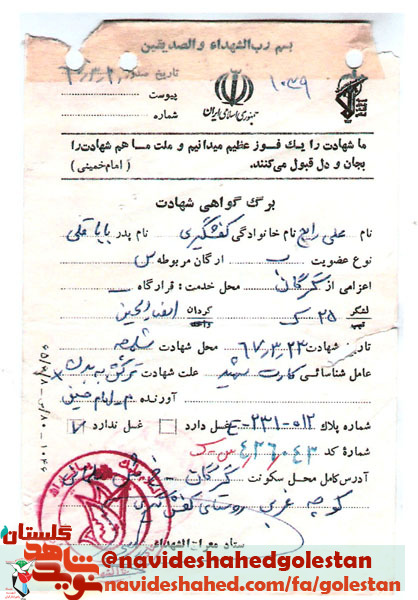 بسم رب الشهداء والصدیقین
تاریخ صدور
پیوست
شماره
۱۰۳۹
جمهوری اسلامی ایران
ما شهادت را یك فوز عظیم میدانیم و ملت مـا هم شهادت را
بجان و دل قبول می‌کنند. (امام خمینی)
برگ گواهی شهادت
نام علی نام خانوادگی کفشگیری نام پدر بابا قلی
نوع عضویت ب ارگان مربوطه س
اعزامی از گرگان محل خدمت: قرارگاه
لشگر ۲۵ ک گردان
تیپ
تاریخ شهادت ۶۷/۳/۲۳ محل شهادت شلمچه
عامل شناسائی کارت شهید علت شهادت ترکش به بدن
آورنده م-امام خمینی
شماره پلاك ۰۱۲-۲۳۱-E غسل دارد غسل ندارد
شماره کد
آدرس کامل محل سکونت گرگان
کوچه غربی روستای کفشگیری
ستاد معراج الشهداء
نوید شاهد گلستان
@navideshahedgolestan
navideshahed.com/fa/golestan